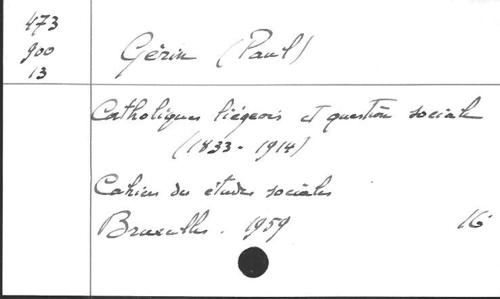 473
900
13
Gérin (Paul)
Catholiques liégeois et question sociale
(1833-1914)
Cahiers des études sociales
Bruxelles. 1959 16°